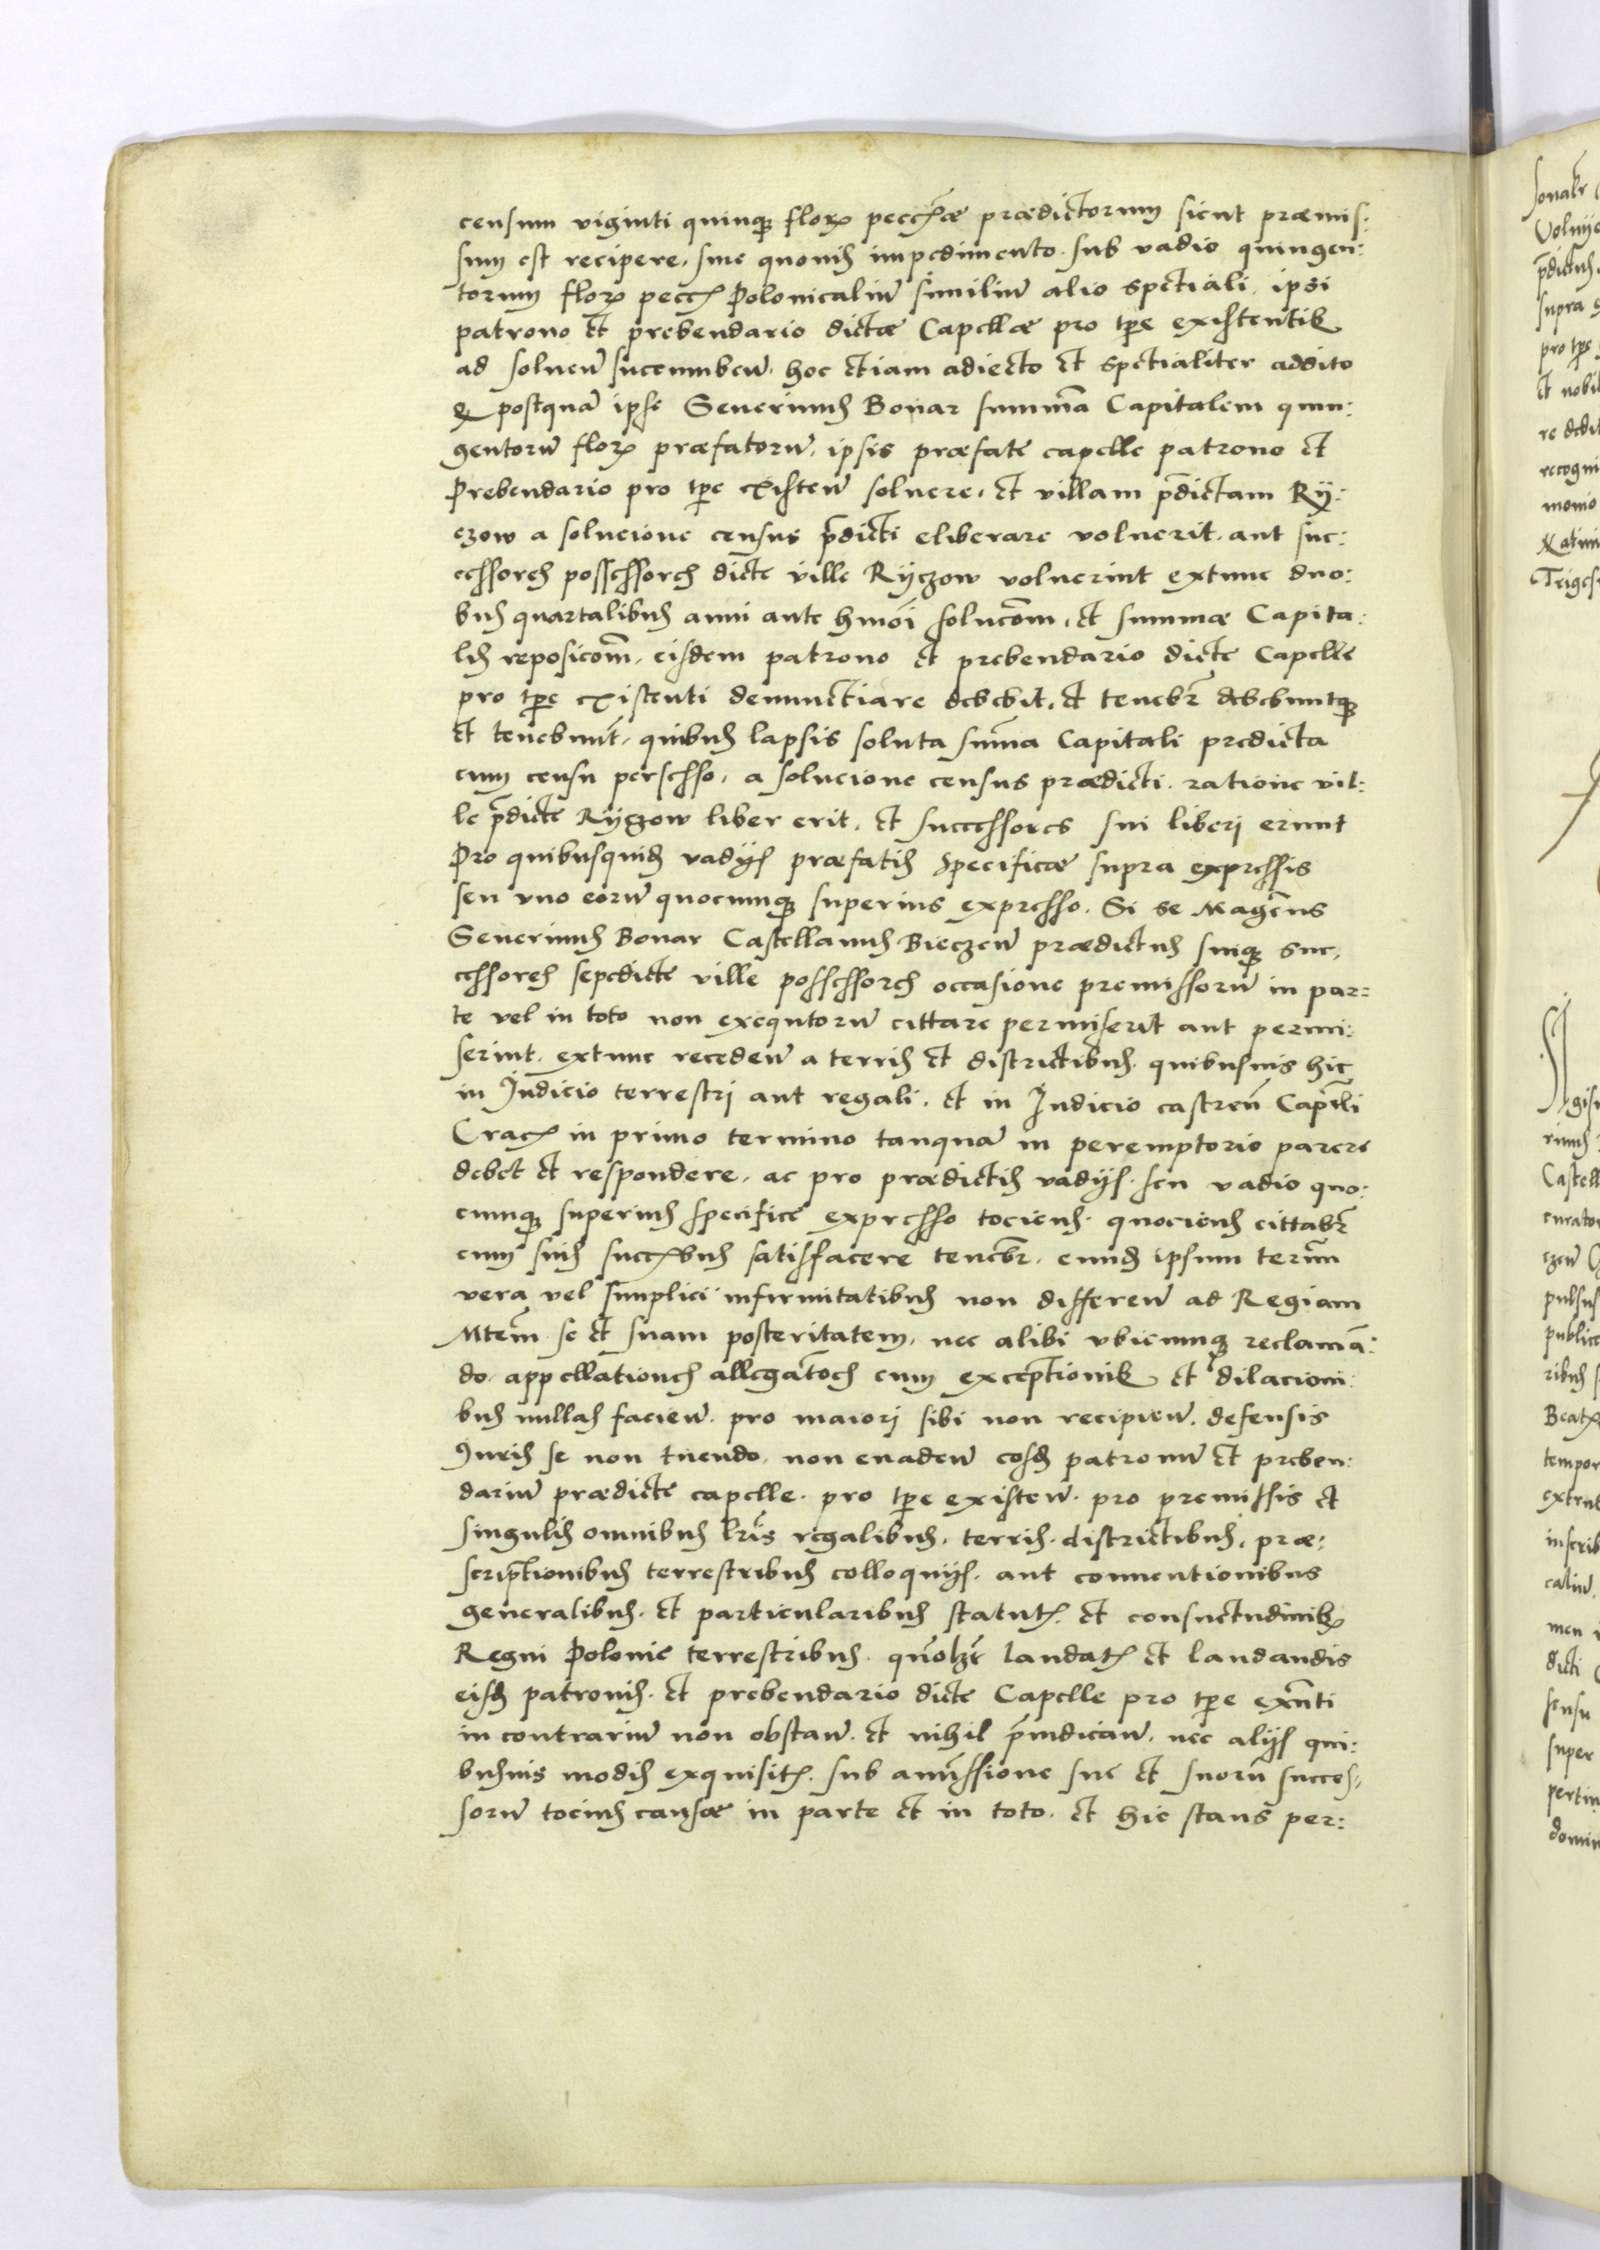 censum viginti quinqꝫ floroꝝ pecciæ prædictorum sicut præmis:
sum est recipere, sine quovis impedimento sub vadio quingen:
torum floroꝝ pecc Polonicaliū similiū alio spetiali, ipsi
patrono et prebendario dictæ Capellæ pro tꝑe existentibꝫ
ad solueñ succumbeñ, hoc etiam adiecto et spetialiter addito
ꝙ postquā ipse Seuerinus Bonar sum̄ā Capitalem quin:
gentorū floroꝝ præfatorū, ipsis præfate capelle patrono et
Prebendario pro tꝑe existeñ soluere, et villam p̄dictam Rÿ:
czow a solucione census p̄dicti eliberare voluerit, aut suc:
cessores possessores dicte ville Rÿczow voluerint extunc duo:
bus quartalibus anni ante hm̄oi solucōm, et summæ Capita:
lis reposicōm, eisdem patrono et prebendario dicte Capelle
pro tꝑe existenti denunctiare debebit, et tenebr̄ debebuntqꝫ
et tenebunt̄, quibus lapsis soluta sum̄a Capitali predicta
cum censu persesso, a solucione census prædicti ratione vil:
le p̄dicte Rÿczow liber erit, et successores sui liberi erunt
Pro quibusquidꝫ vadijs præfatis specificæ supra expressis
seu vno eorū quocunqꝫ superius expresso. Si se Magcūs
Seuerinus Bonar Castellanus Bieczeñ prædictus suiqꝫ suc,
cessores sepedicte ville possessores occasione premissorū in par:
te vel in toto non exequtorū cittare permiserit aut permi:
serint, extunc recedeñ a terris et districtibus quibusuis hic
in Judicio terrestri aut regali, et in Judicio castreñ Capitli
Crac in primo termino tanquā in peremptorio parere
debet et respondere, ac pro prædictis vadijs seu vadio quo:
cunqꝫ superius specifice expresso tociens quociens cittabr̄
cum suis succibus satisfacere tenebr̄, eundꝫ ipsum term̄
vera vel simplici infirmitatibus non differeñ ad Regiam
Mtem̄ se et suam posteritatem, nec alibi vbicunqꝫ reclamā:
do, appellationes allegatōes cum exceptionibꝫ et dilacioni:
bus nullas facieñ, pro maiori sibi non recipieñ, defensis
Juris se non tuendo, non euadeñ eosdꝫ patronū et preben:
dariū prædicte capelle pro tꝑe existeñ pro premissis et
singulis omnibus lr̄is regalibus, terris, districtibus, præ:
scriptionibus terrestribus colloquijs, aut conuentionibus
generalibus et particularibus statutꝭ et consuetudinibꝫ
Regni Polonie terrestribus, qūolꝫt̄ laudatꝭ et laudandis
eisdꝫ patronis et prebendario dicte Capelle pro tꝑe exn̄ti
in contrariū non obstañ, et nihil p̄iudicañ, nec alijs qui:
busuis modis exquisitꝭ, sub amissione sue et suorū succes:
sorū tocius causæ in parte et in toto, et hic stans per: